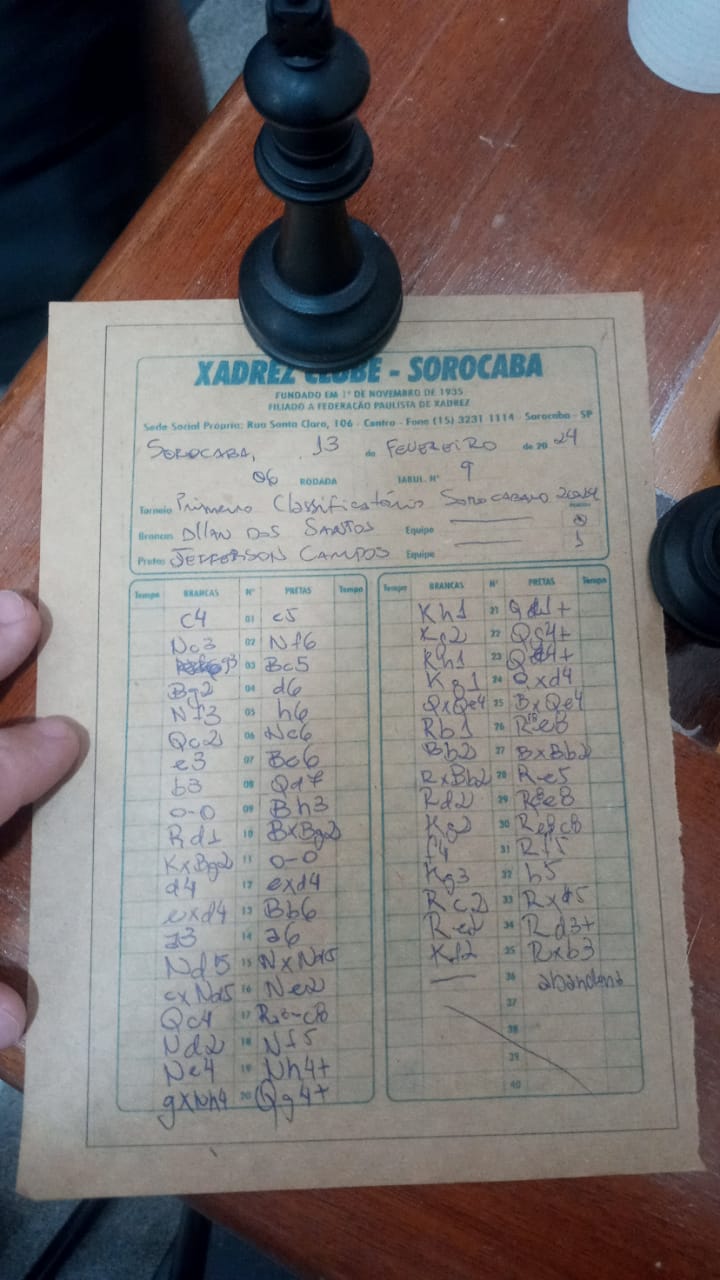 XADREZ CLUBE - SOROCABA
FUNDADO EM 1º DE NOVEMBRO DE 1935
FILIADO A FEDERAÇÃO PAULISTA DE XADREZ
Sede Social Própria: Rua Santa Clara, 106 - Centro - Fone (15) 3231-1114 - Sorocaba - SP
SOROCABA, 13 de FEVEREIRO de 20 24
06 RODADA TABUL. Nº 9
Torneio Primeiro Classificatório Sorocabano 2024
Brancas Allan Dos SANTOS Equipe 0
Pretas JEFFERSON CAMPOS Equipe 1
Tempo BRANCAS Nº PRETAS Tempo
c4 01 e5
Nc3 02 Nf6
g3 03 Bc5
Bg2 04 d6
Nf3 05 h6
Qc2 06 Nc6
e3 07 Be6
b3 08 Qd7
0-0 09 Bh3
Rd1 10 BxBg2
KxBg2 11 0-0
d4 12 exd4
exd4 13 Bb6
a3 14 a6
Nd5 15 NxNd5
cxNd5 16 Ne7
Qc4 17 c8
Nd2 18 Nf5
Ne4 19 Nh4+
gxNh4 20 Qg4+
Tempo BRANCAS Nº PRETAS Tempo
Kh1 21 Qd1+
Kg2 22 Qg4+
Kh1 23 Q4+
Kg1 24 xd4
QxQe4 25 BxQe4
Rb1 26 Re8
Bb2 27 BxBb2
RxBb2 28 Re5
Rd2 29 e8
Kg2 30 Re8c8
f4 31 Rf5
Kg3 32 b5
Rc2 33 Rx5
Re2 34 Rd3+
Kf2 35 Rxb3
36 abandona
37
38
39
40